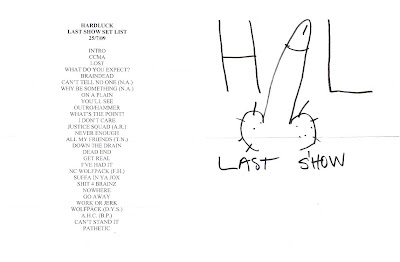 HARDLUCK
LAST SHOW SET LIST
25/7/09
INTRO
CCMA
LOST
WHAT DO YOU EXPECT?
BRAINDEAD
CAN'T TELL NO ONE (N.A.)
WHY BE SOMETHING (N.A.)
ON A PLAIN
YOU'LL SEE
OUTRO/HAMMER
WHAT'S THE POINT?
I DON'T CARE
JUSTICE SQUAD (A.R.)
NEVER ENOUGH
ALL MY FRIENDS (T.N.)
DOWN THE DRAIN
DEAD END
GET REAL
I'VE HAD IT
NC WOLFPACK (F.H.)
SUFFA IN YA JOX
SHIT 4 BRAINZ
NOWHERE
GO AWAY
WORK OR JERK
WOLFPACK (D.Y.S.)
A.H.C. (B.P.)
CAN'T STAND IT
PATHETIC
HAL
LAST SHOW